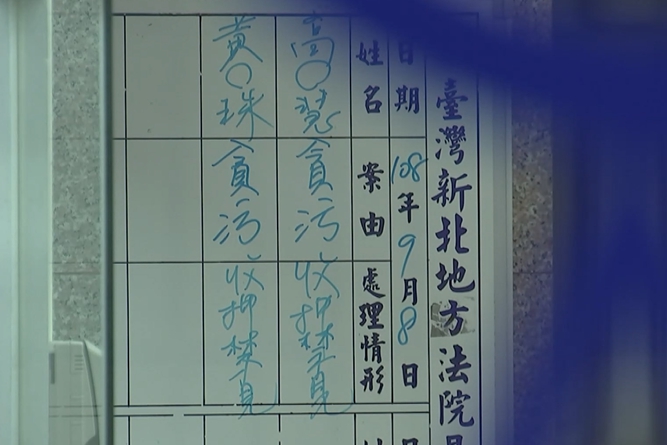 臺灣新北地方法院
日期 108年9月8日
姓名 案由 處理情形
高○慧 貪污 收押禁見
黃○珠 貪污 收押禁見